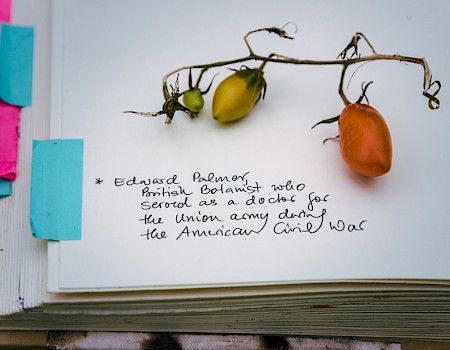 * Edward Palmer,
British Botanist who
served as a doctor for
the Union army during
the American Civil War